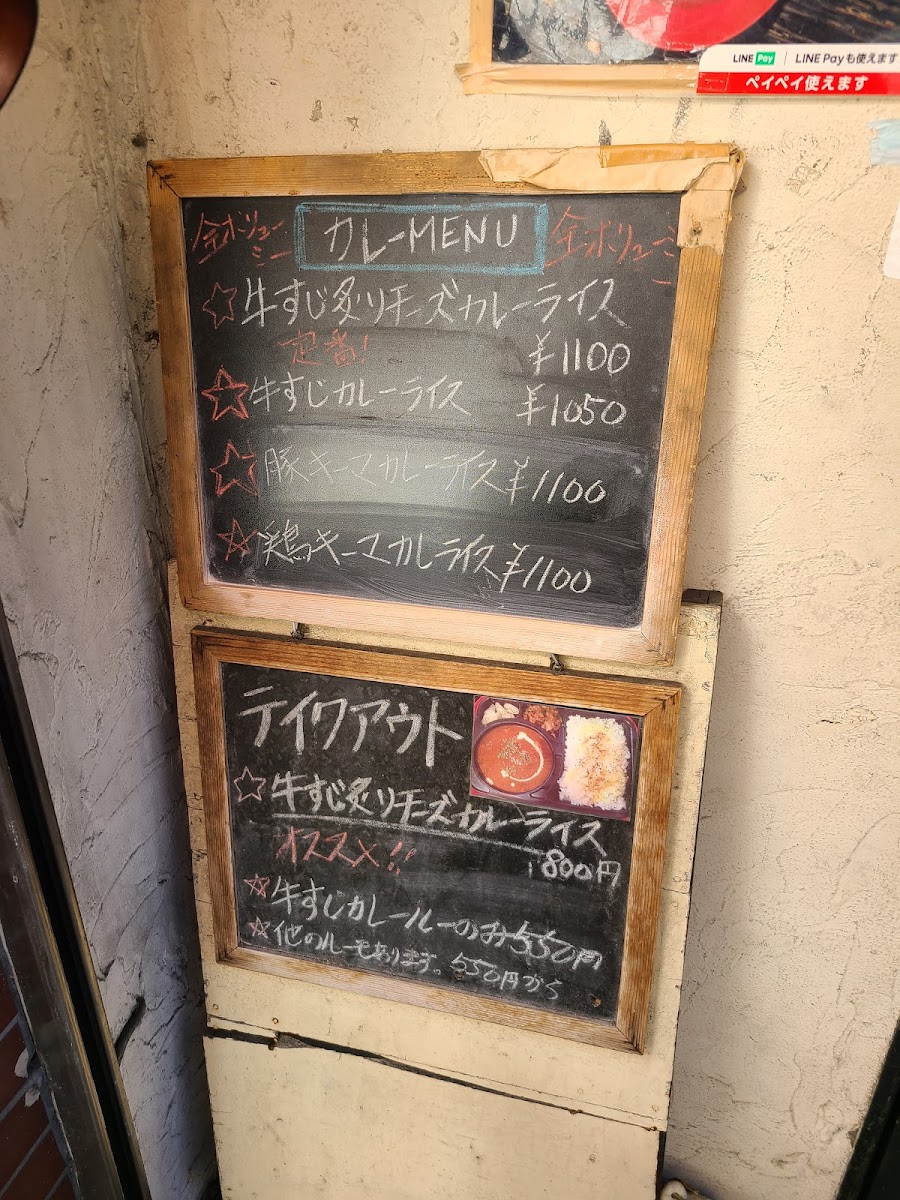 LINE Pay LINE Payも使えます
ペイペイ使えます
全ボリューミー カレーMENU 全ボリューミー
☆牛すじ炙りチーズカレーライス
定番! ¥1100
☆牛すじカレーライス ¥1050
☆豚キーマカレーライス¥1100
☆鶏キーマカレーライス¥1100
テイクアウト
☆牛すじ炙りチーズカレーライス
オススメ!! 800円
☆牛すじカレールーのみ550円
☆他のルーもあります。550円から